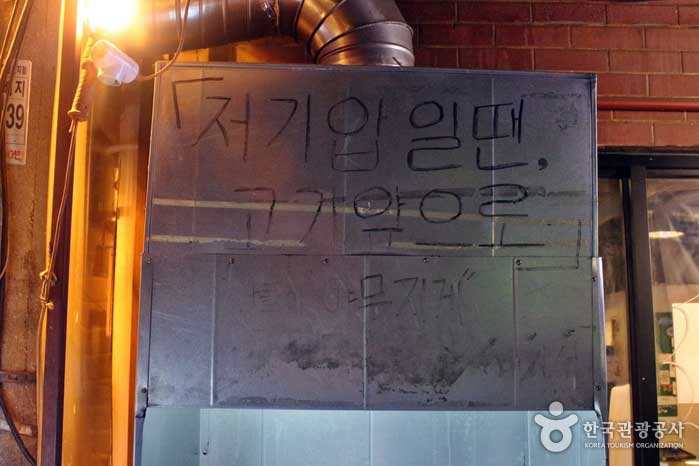 「저기압 일땐,
고기앞으로」
야무지게"
지
39
한국관광공사
KOREA TOURISM ORGANIZATION